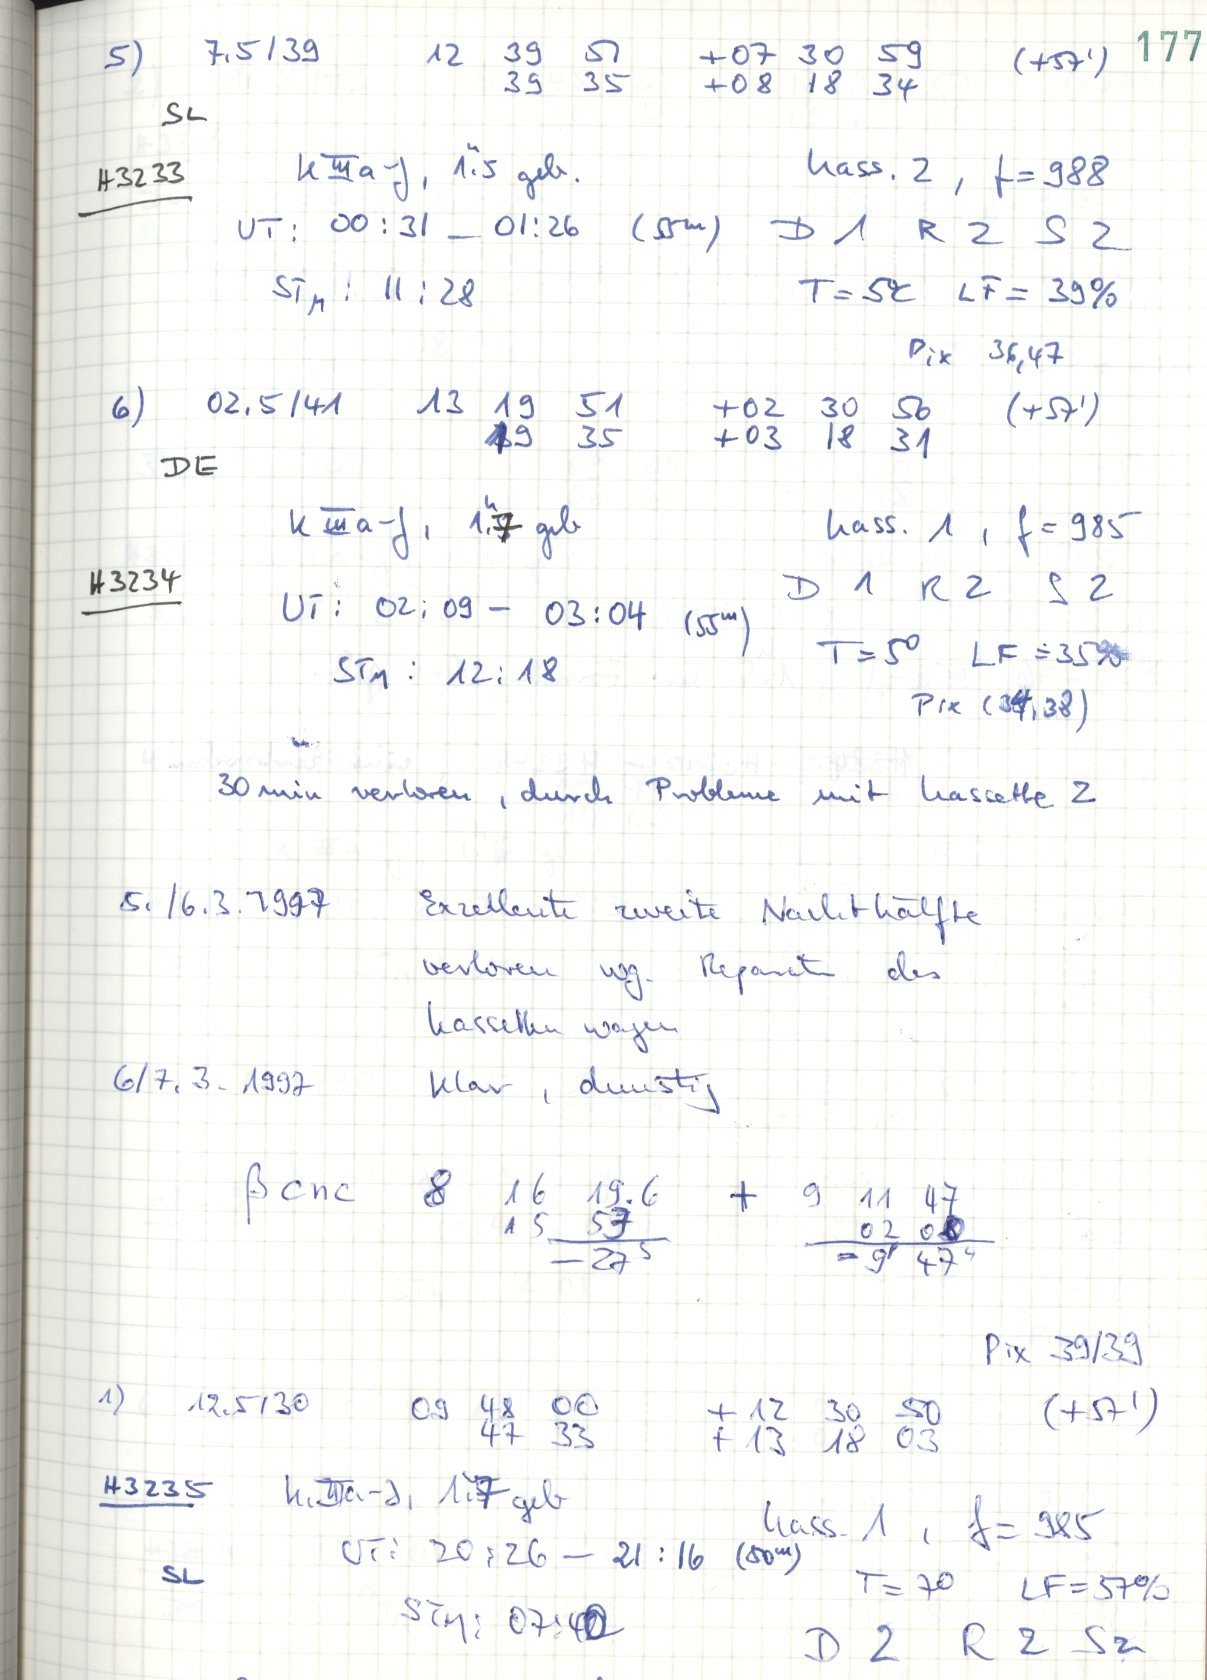 177
5) 7.5/39 12 39 51 +07 30 59 (+57')
39 35 +08 18 34
SL
H3233 K III a-J, 1."5 geb. Kass. 2, f=988
UT: 00:31 – 01:26 (55m) D 1 R 2 S 2
STM: 11:28 T=5°C LF=39%
Pix 36,47
6) 02.5/41 13 19 51 +02 30 56 (+57')
19 35 +03 18 31
DE
K III a-J, 1."7 geb Kass. 1, f=985
H3234 D 1 R 2 S 2
UT: 02:09 – 03:04 (55m)
T=5° LF=35%
STM: 12:18
Pix (34,38)
30 min verloren, durch Probleme mit Kassette 2
5./6.3.1997 Exzellente zweite Nachthälfte
verloren wg. Reparatur des
Kassettenwagen
6/7.3.1997 Klar, dunstig
β Cnc 8 16 19.6 + 9 11 47
15 57 02 00
–27s = 9' 47"
Pix 39/39
1) 12.5/30 09 48 00 +12 30 50 (+57')
47 33 +13 18 03
H3235 K III a-J, 1."7 geb
Kass. 1, f=985
UT: 20:26 – 21:16 (50m)
SL T=7° LF=57%
STM: 07:40
D 2 R 2 S 2